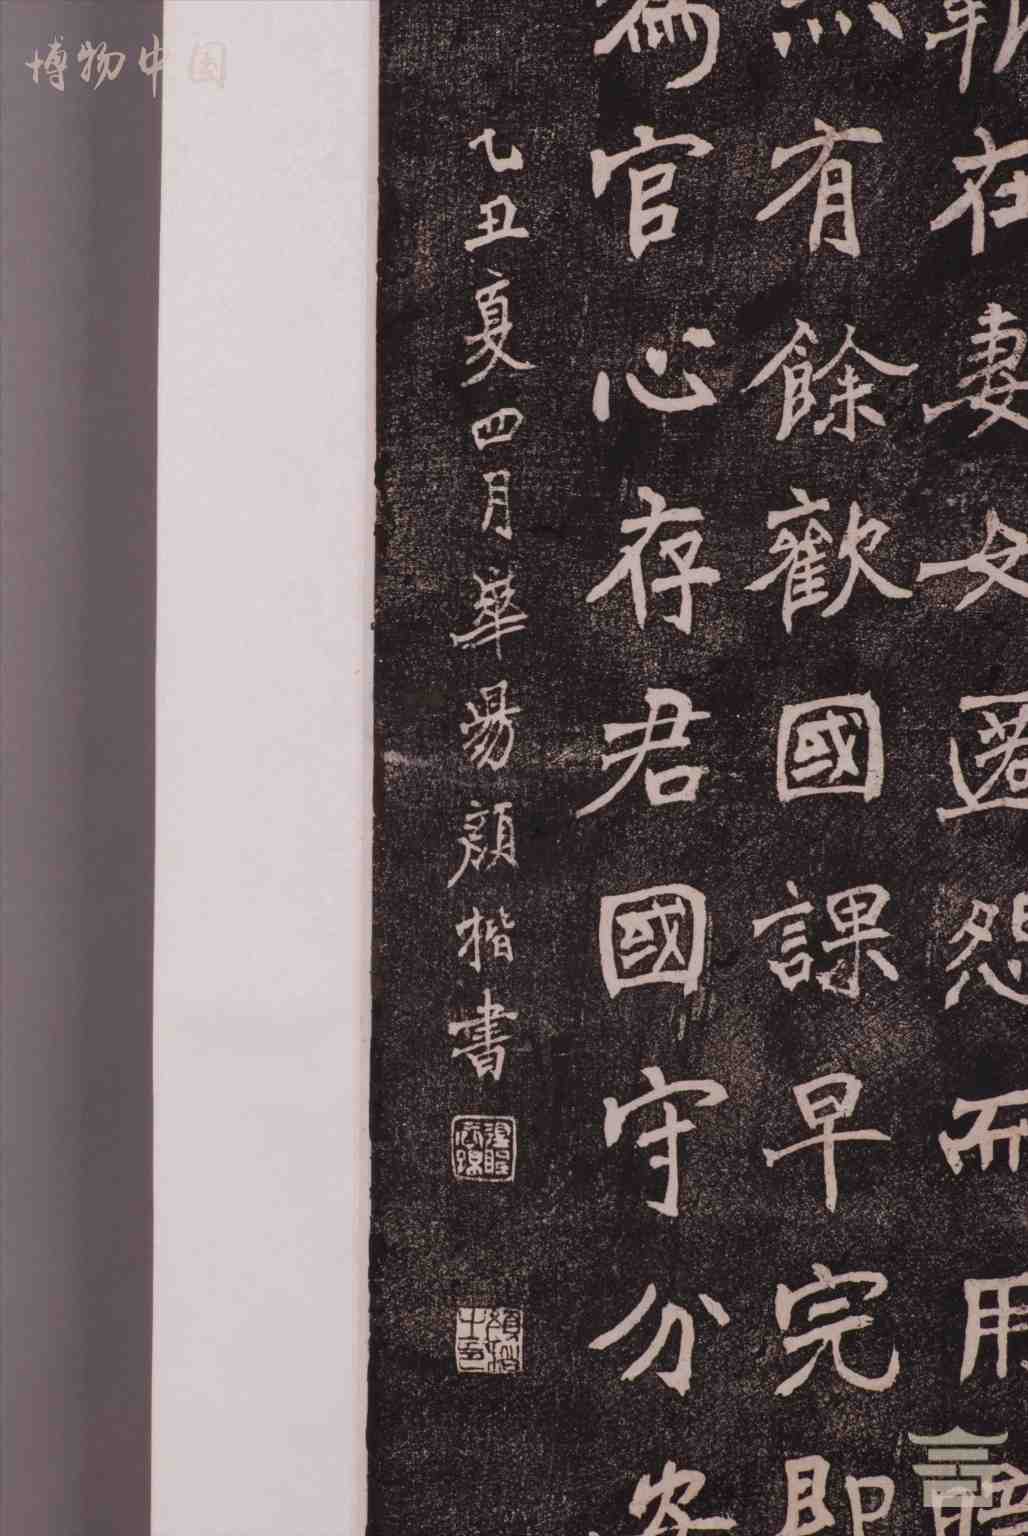 博物中国
在妻女匿怨而用
有餘歡國課早完即
為官心存君國守分安
乙丑夏四月華陽顏楷書